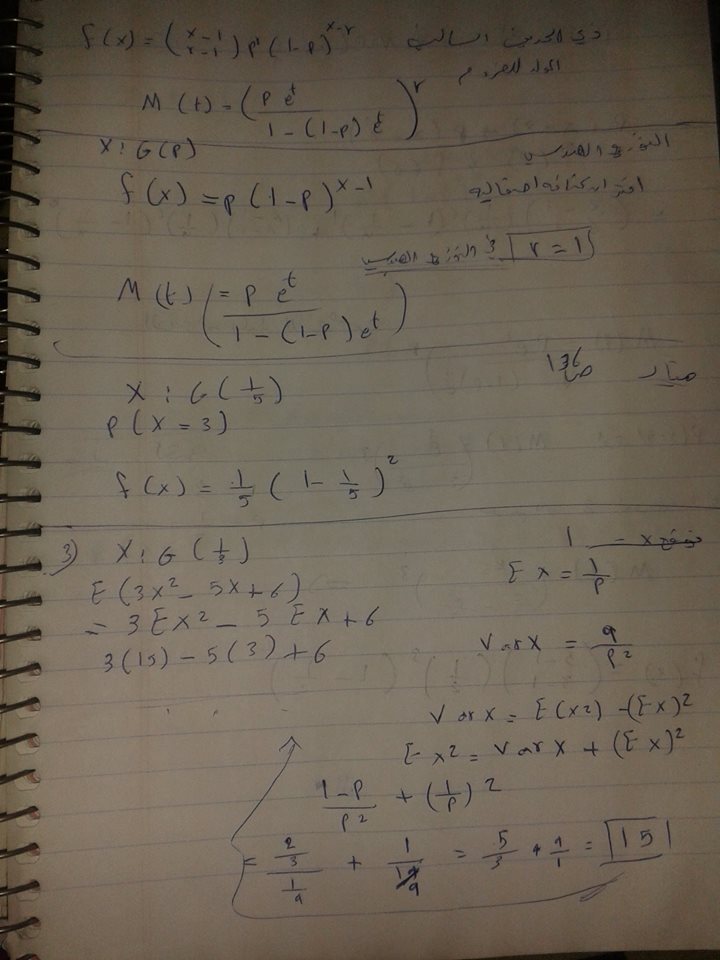 f(x) = (x-1 r-1) p^r (1-p)^{x-r} ذي الحدين السالب
M(t) = (p e^t / 1-(1-p) e^t)^r
X : G(p) التوزيع الهندسي
f(x) = p (1-p)^{x-1}
r = 1 في التوزيع الهندسي
M(t) (= p e^t / 1-(1-p) e^t)
ص 136
X : G(1/5)
P(X = 3)
f(x) = 1/5 (1 - 1/5)^2
3) X : G(1/3)
E(3x^2 - 5x + 6)
= 3 Ex^2 - 5 Ex + 6
3(15) - 5(3) + 6
Ex = 1/p
Var X = q/p^2
Var X = E(x2) - (Ex)^2
Ex^2 = Var X + (Ex)^2
1-p/p^2 + (1/p)^2
= 2/3 / 1/9 + 1 / 1/9 = 5/3 * 9/1 = 15